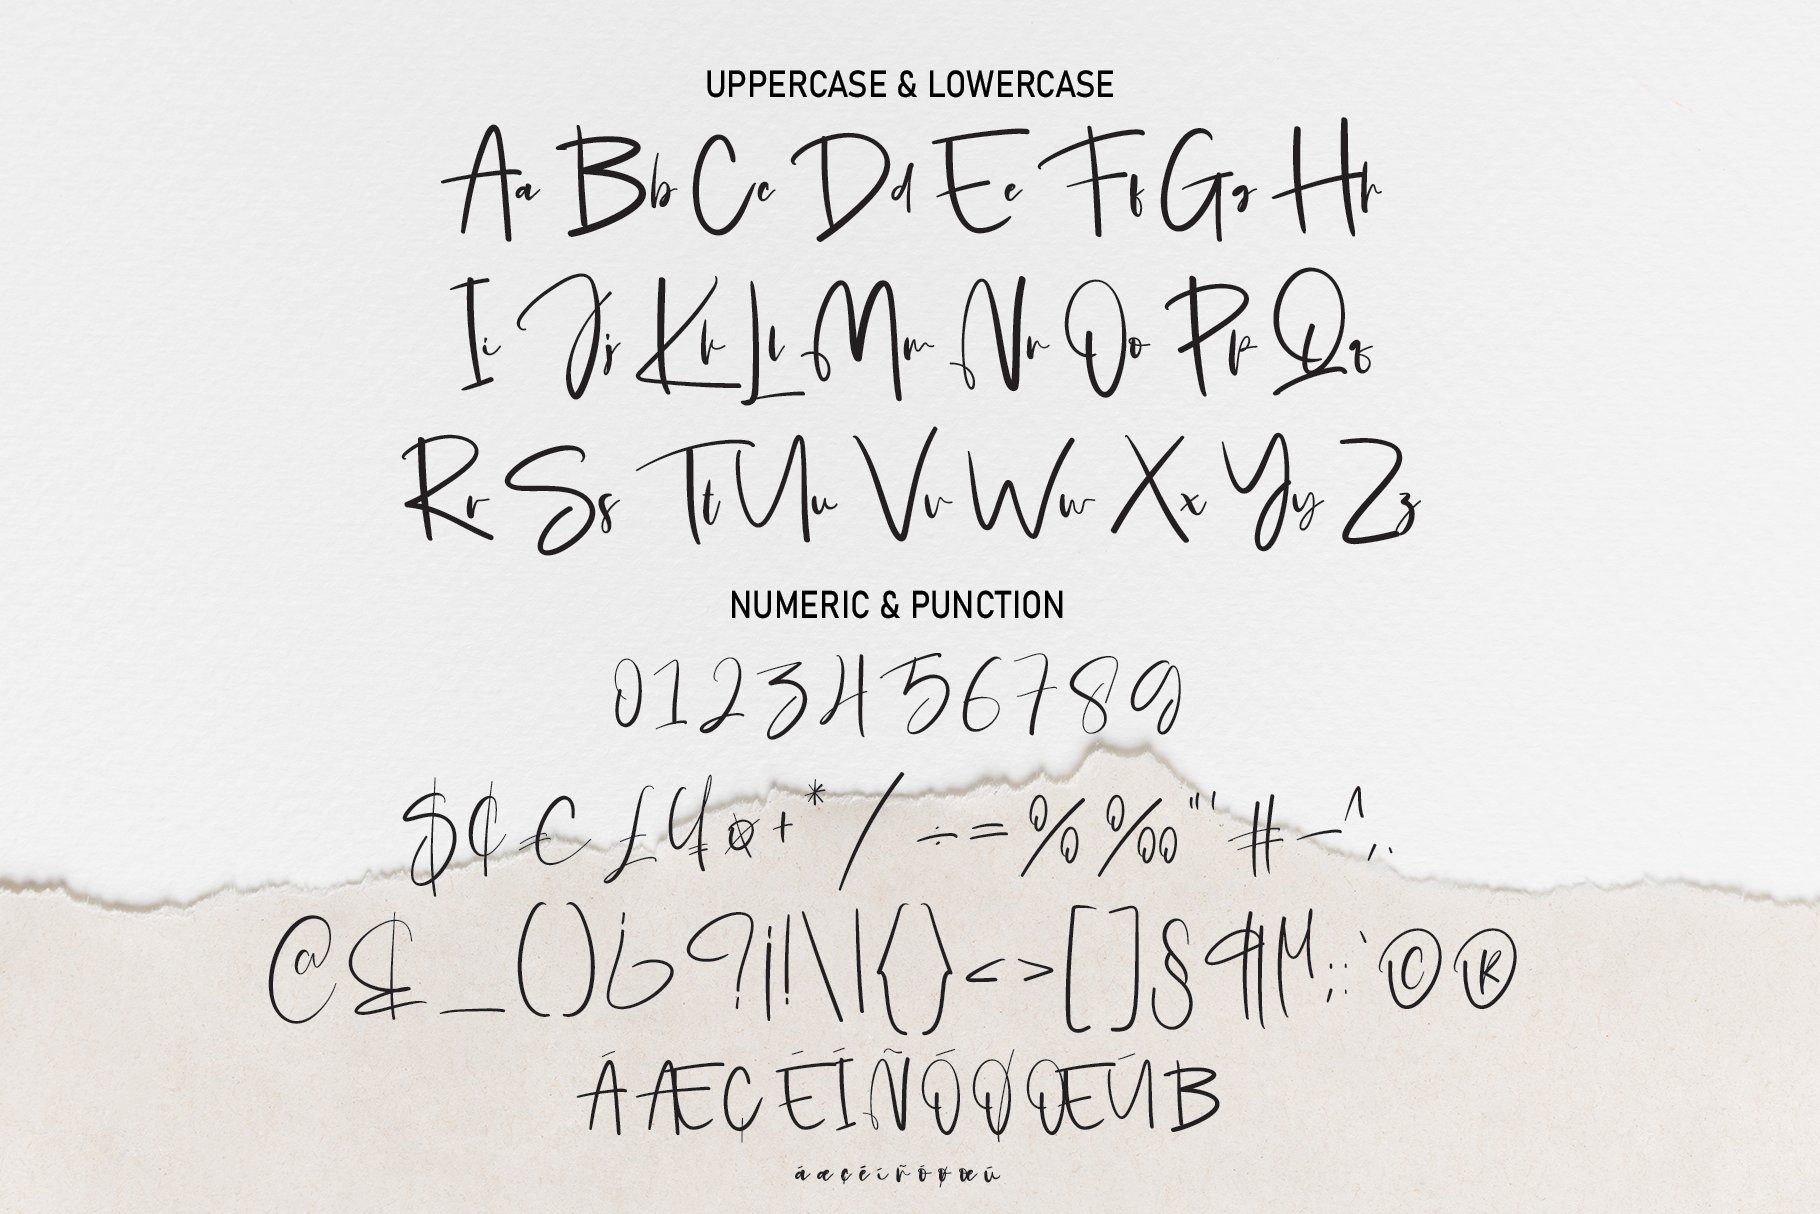 UPPERCASE & LOWERCASE
Aa Bb Cc Dd Ee Ff Gg Hh
Ii Jj Kk Ll Mm Nn Oo Pp Qq
Rr Ss Tt Uu Vv Ww Xx Yy Zz
NUMERIC & PUNCTION
0123456789
$¢€£¥¤+*/÷=%‰"'#–^,.
@&_()¿?¡!\|{}<>[]§¶µ;:`©®
ÁÆÇÉÍÑÓØŒÚB
áæçéíñóøœú